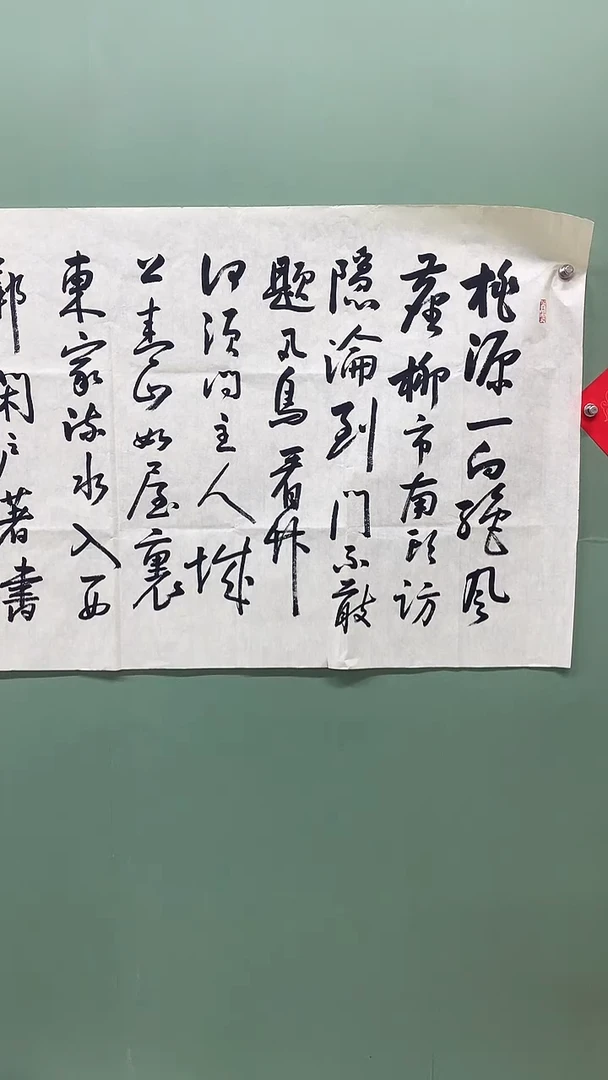 桃源一向絕風
塵柳市南頭訪
隱淪到門不敢
題凡鳥看竹
何須問主人城
上青山如屋裏
東家流水入西
鄰閉戶著書